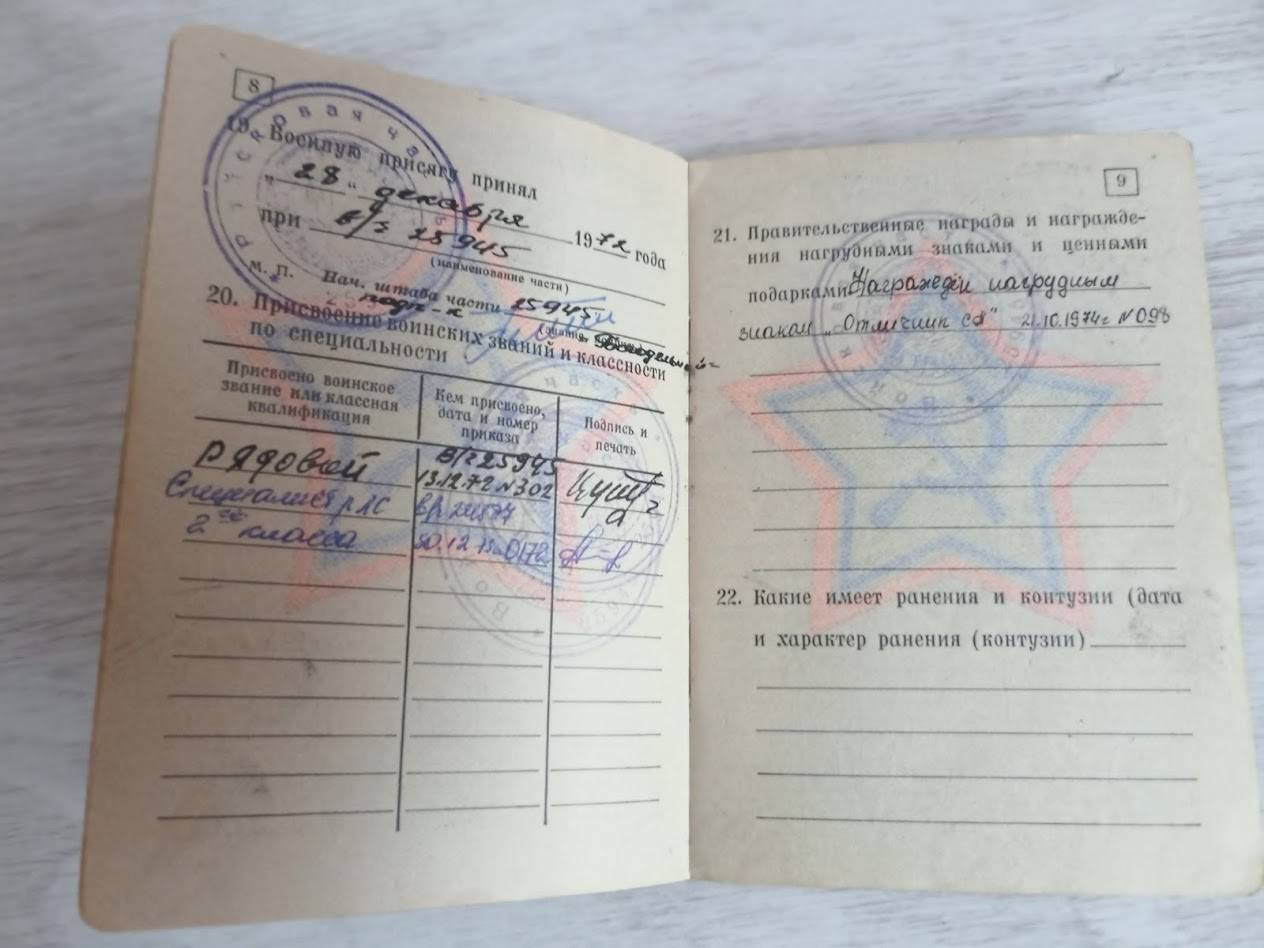 8
19. Военную присягу принял
"28" декабря 1972 года
при в/ч 25945
(наименование части)
М. П. Нач. штаба части 25945
подп-к
20. Присвоение воинских званий и классности
по специальности
Присвоено воинское звание или классная квалификация
Кем присвоено, дата и номер приказа
Подпись и печать
рядовой
в/ч 25945
13.12.72 №302
Специалист РЛС
2го класса
9
21. Правительственные награды и награжде-
ния нагрудными знаками и ценными
подарками Награждён нагрудным
знаком „Отличник СА" 21.10.1974г №098
22. Какие имеет ранения и контузии (дата
и характер ранения (контузии)